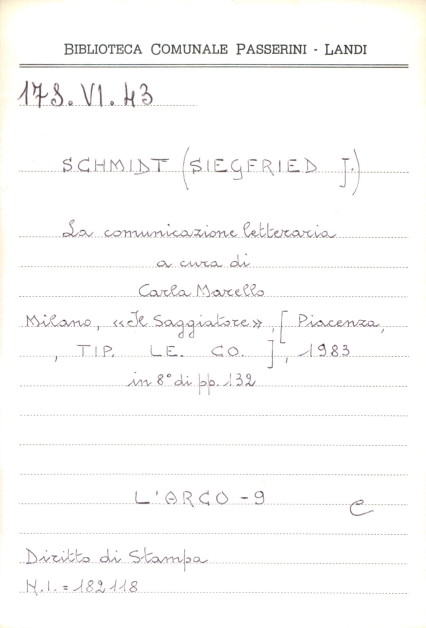 BIBLIOTECA COMUNALE PASSERINI - LANDI
173.VI.43
SCHMIDT (SIEGFRIED J.)
La comunicazione letteraria
a cura di
Carla Marello
Milano, «Il Saggiatore», [Piacenza,
, TIP. LE. CO.], 1983
in 8° di pp. 132
L'ARCO - 9
C
Diritto di Stampa
N.I. = 182118